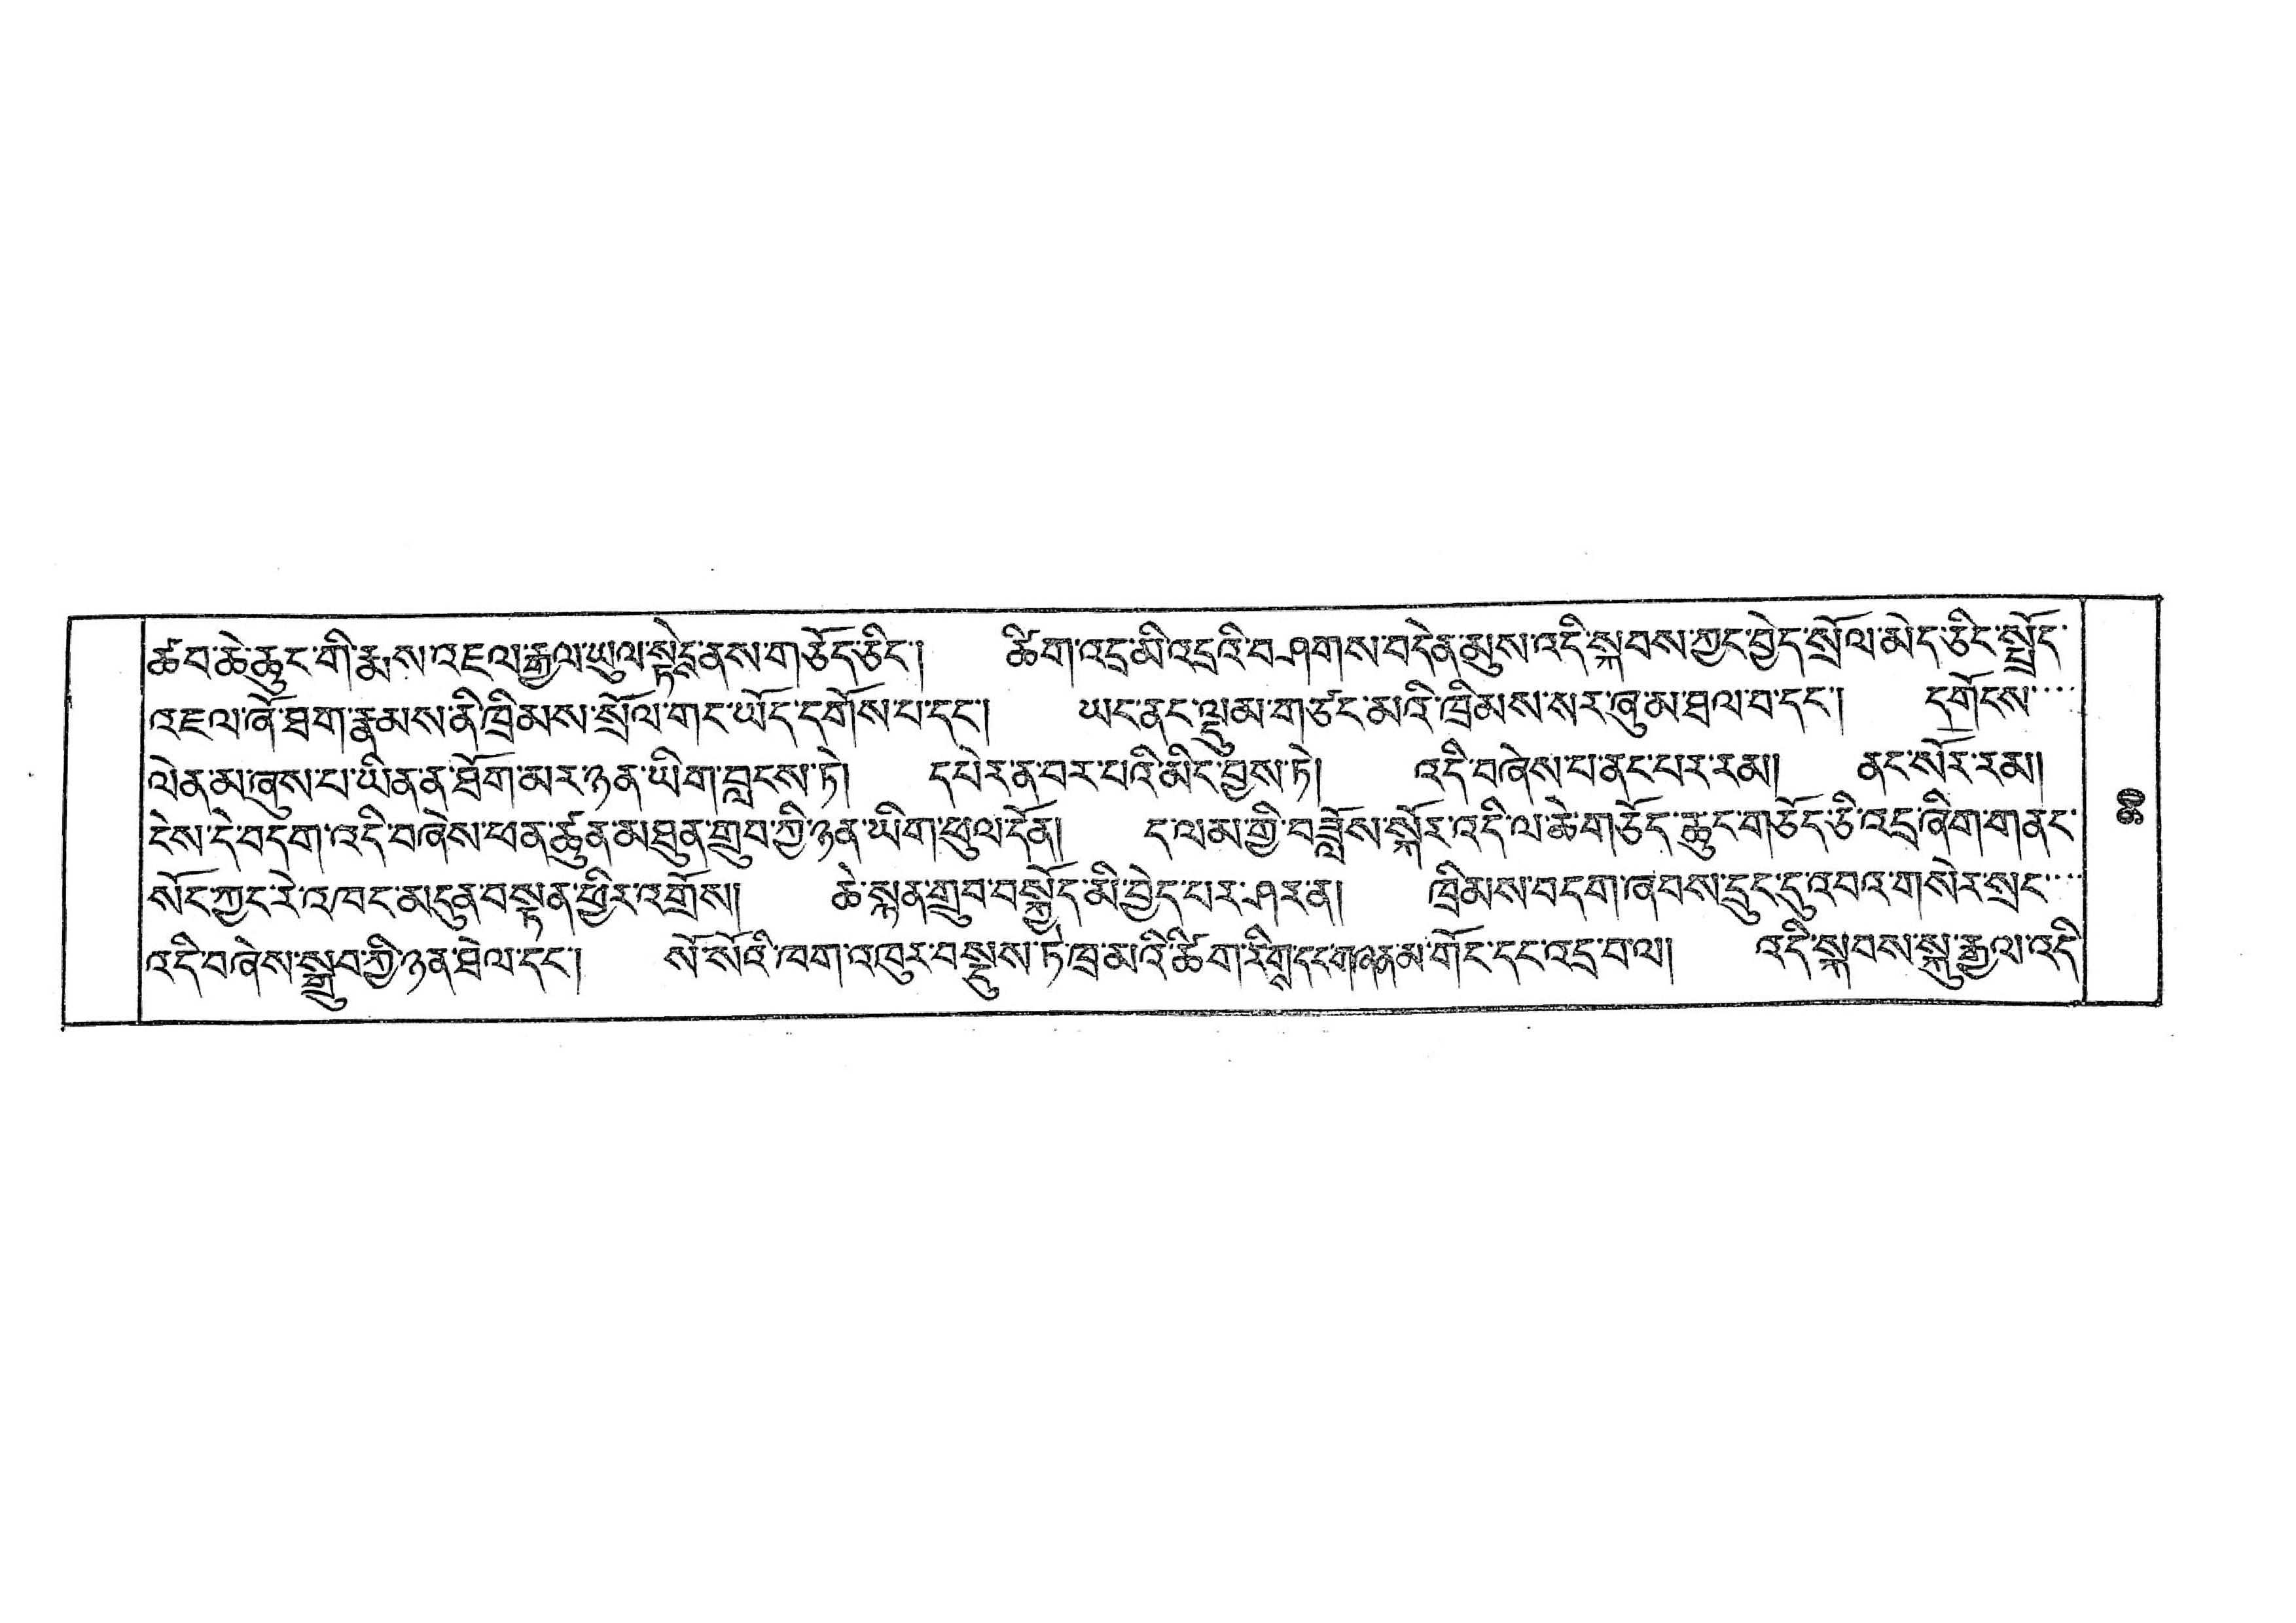 ཚབ་ཆེ་ཆུང་གི་རྨས་འཇལ་རྒྱལ་ཡུལ་སྟེང་ནས་གཅོད་ཅིང་། ཚིག་འདྲ་མི་འདྲའི་བཤགས་བདེན་མུས་འདི་སྐབས་ཀྱང་བྱེད་སྲོལ་མེད་ཅིང་སྤྲོད་
འཇལ་ཞོ་ཐག་རྣམས་ནི་ཁྲིམས་སྲོལ་གང་ཡོད་དགོས་པ་དང་། ཡང་ནང་ལྡུམ་གཙང་མའི་ཁྲིམས་སར་ཞུ་མ་ཐལ་བ་དང་། དགོངས་
ལེན་མ་ཞུས་པ་ཡིན་ན་ཐོག་མར་ཉན་ཡིག་བླངས་ཏེ། དཔེར་ན་བར་པའི་མིང་བྱས་ཏེ། འདི་བཞེས་པ་ནང་པར་རམ། ནང་སོར་རམ།
ངེས་དེ་བདག་འདི་བཞེས་ཕན་ཚུན་མཐུན་གྲུབ་ཀྱི་ཉན་ཡིག་ཕུལ་དོན། ད་ལམ་གྱི་བཟློས་སྐོར་འདི་ལ་ཆེ་གཅོད་ཆུང་གཅོད་ཅི་འདྲ་ཞིག་གནང་
སོང་ཀྱང་རེ་འ་ཁང་མདུན་བསྟན་ཕྱིར་འགྲོས། ཆེ་སྙན་གྲུབ་བསྐྱོད་མི་བྱེད་པར་ཤར་ན། ཁྲིམས་བདག་ཞབས་དྲུང་དུ་འབའ་གསེར་སྲང་
འདི་བཞེས་སྒྲུབ་ཀྱི་ཉན་ཐེལ་དང་། སོ་སོའི་ཁག་འཁུར་བསྡུས་ཏེ་ཁྲ་མའི་ཚིག་རིགྭ་དང་གཞན་མ་གོང་དང་འདྲ་བ་ལ། འདི་སྐབས་སྐུ་རྒྱལ་འདི